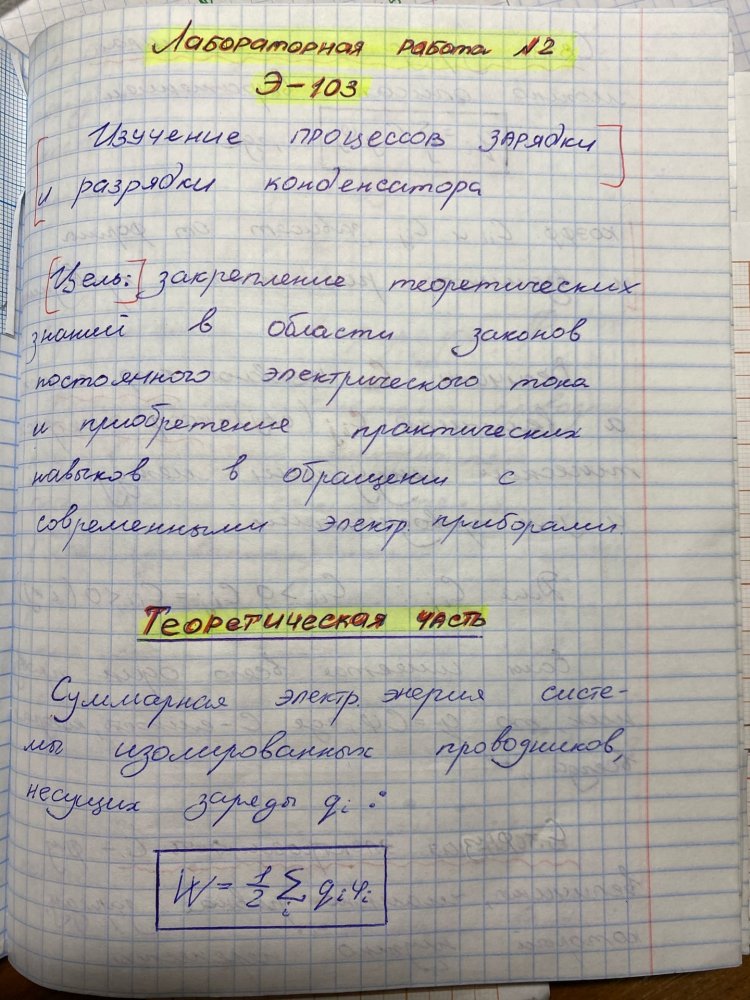 Лабораторная работа №2
Э-103
Изучение процессов зарядки
и разрядки конденсатора
Цель: закрепление теоретических
знаний в области законов
постоянного электрического тока
и приобретение практических
навыков в обращении с
современными электр. приборами.
Теоретическая часть
Суммарная электр. энергия систе-
мы изолированных проводников,
несущих заряды qᵢ:
W = 1/2 Σᵢ qᵢφᵢ